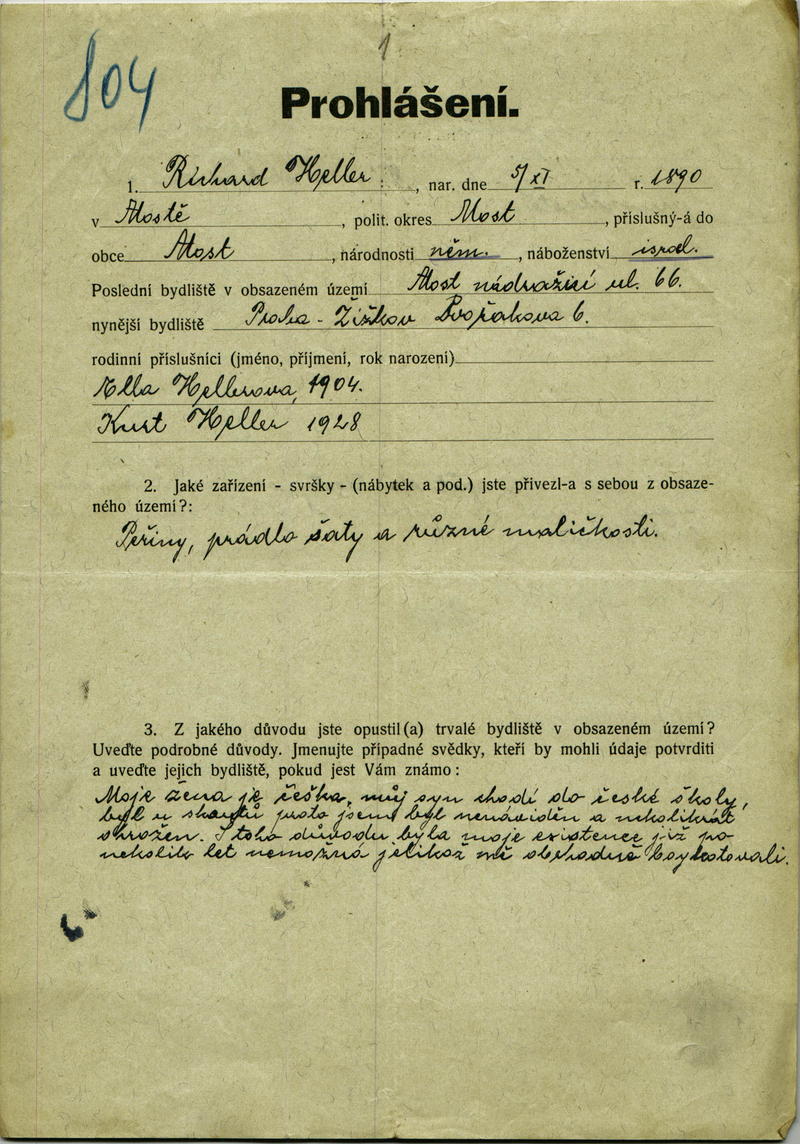 1
804
Prohlášení.
1. Richard Heller, nar. dne 5/XI r. 1890
v Mostě, polit. okres Most, příslušný-á do
obce Most, národnosti něm., náboženství israel.
Poslední bydliště v obsazeném území Most nádražní ul. 66.
nynější bydliště Praha - Žižkov Dvořákova 6.
rodinní příslušníci (jméno, příjmení, rok narození)
Ella Hellerova, 1904.
Kurt Heller 1928
2. Jaké zařízení - svršky - (nábytek a pod.) jste přivezl-a s sebou z obsaze-
ného území?:
Peřiny, prádlo šaty a různé maličkosti.
3. Z jakého důvodu jste opustil(a) trvalé bydliště v obsazeném území?
Uveďte podrobné důvody. Jmenujte případné svědky, kteří by mohli údaje potvrditi
a uveďte jejich bydliště, pokud jest Vám známo:
Moje žena je češka, můj syn chodí do české školy,
byl u skautů proto jsem byl nenáviděn a nekolikrát
ohrožen. Z toho důvodu byla moje existence již po
nekolik let nemožná jelikož mě obchodně boykotovali.